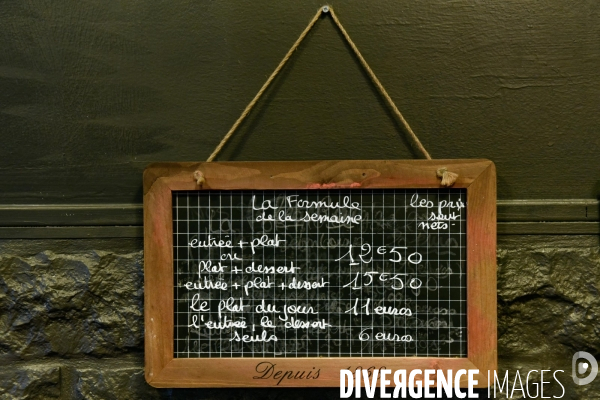 La Formule
de la semaine
les prix
sont
nets.
entrée + plat
ou
plat + dessert
12€50
entrée + plat + dessert 15€50
le plat du jour 11 euros
l'entrée, le dessert
seuls 6 euros
Depuis
DIVERGENCE IMAGES